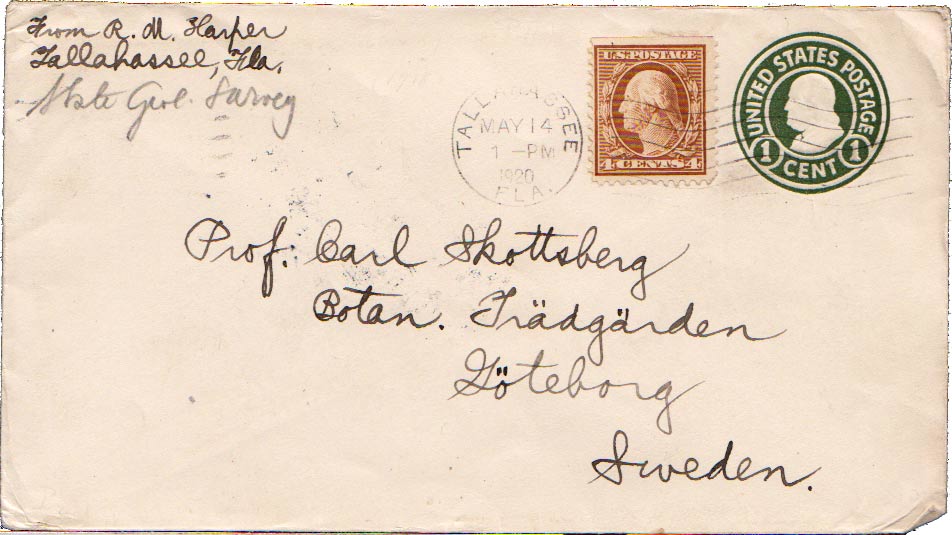 From R. M. Harper
Tallahassee, Fla.
State Geol. Survey
TALLAHASSEE
MAY 14
1 -PM
1920
FLA.
U.S. POSTAGE
4 CENTS 4
UNITED STATES POSTAGE
1 CENT 1
Prof. Carl Skottsberg
Botan. Trädgården
Göteborg
Sweden.